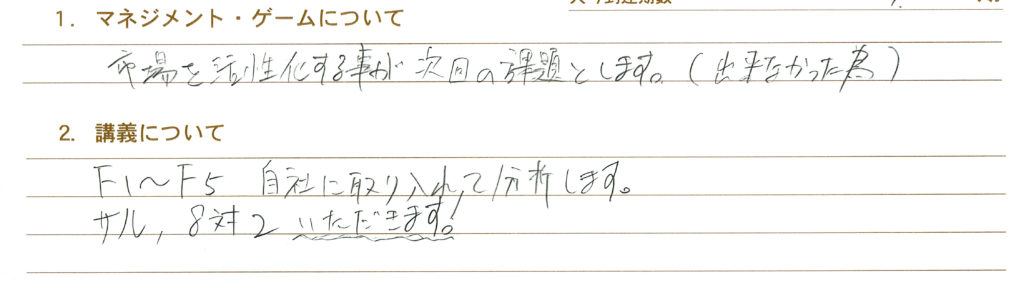 1. マネジメント・ゲームについて
市場を活性化する事が次回の課題とします。(出来なかった為)
2. 講義について
F1〜F5 自社に取り入れて分析します。
サル, 8対2 いただきます!